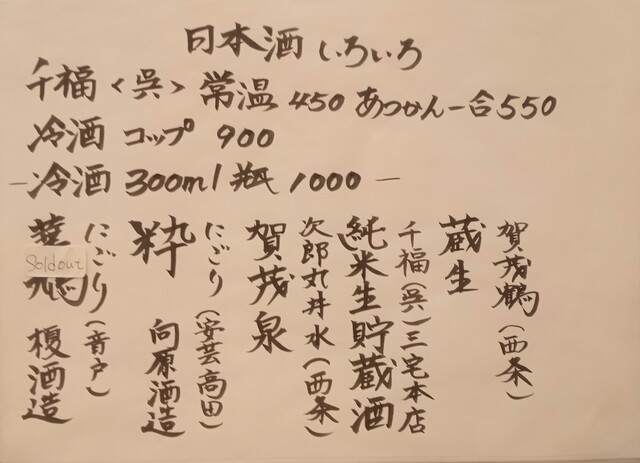 日本酒いろいろ
千福〈呉〉常温450 あつかん一合550
冷酒 コップ 900
－冷酒 300ml瓶 1000－
賀茂鶴(西条)
蔵生
千福(呉)三宅本店
純米生貯蔵酒
次郎丸井水(西条)
賀茂泉
にごり(安芸高田)
粋 向原酒造
にごり(音戸)
華鳩 榎酒造
Sold out